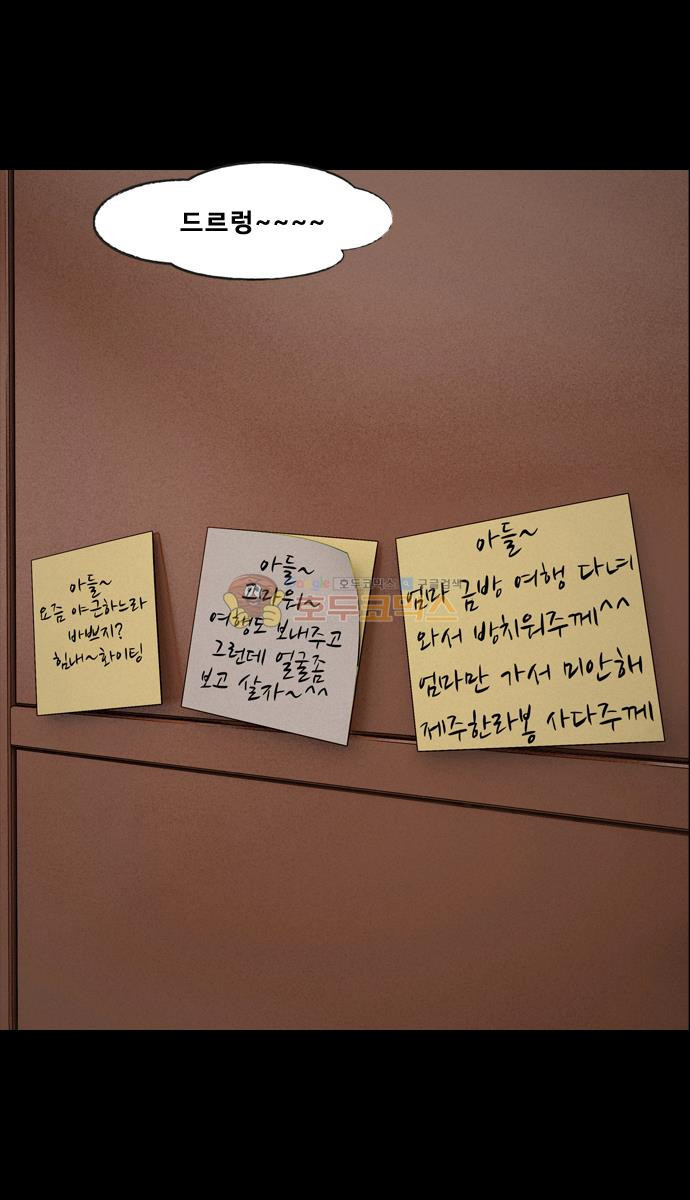 드르렁~~~~
아들~
요즘 야근하느라
바쁘지?
힘내~화이팅
아들~
고마워~
여행도 보내주고
그런데 얼굴좀
보고 살자~^^
아들~
엄마 금방 여행 다녀
와서 방치워주께^^
엄마만 가서 미안해
제주한라봉 사다주께
google 호두코믹스 구글검색
호두코믹스